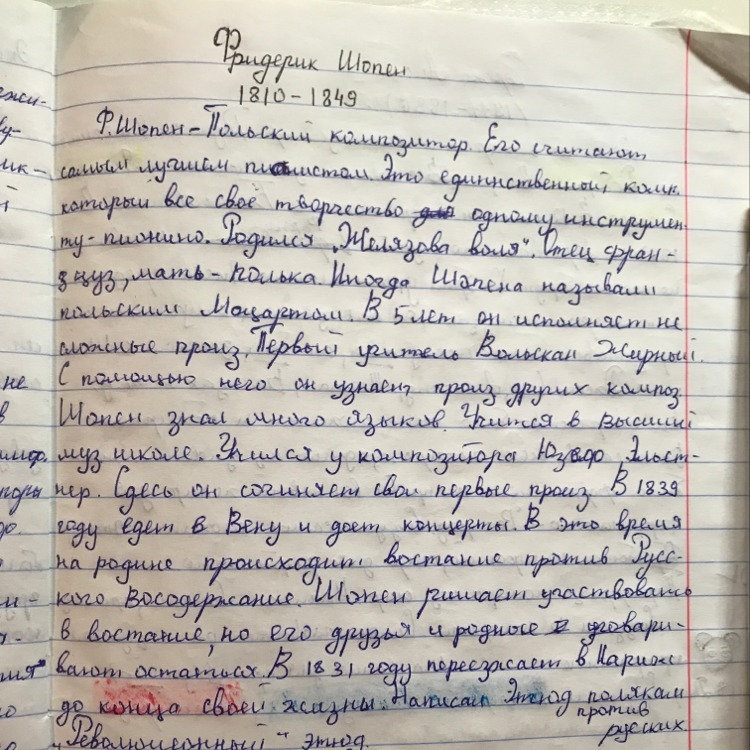 Фридерик Шопен
1810-1849
Ф. Шопен - Польский композитор. Его считают
самым лучшем пианистом. Это единственный комп.
который все своё творчество одному инструмен-
ту - пионино. Родился "Желязова воля". Отец фран-
цуз, мать - полька. Иногда Шопена называли
польским Моцартом. В 5 лет он исполняет не
сложные произ. Первый учитель Вольскан Жирный.
С помощью него он узнает произ других композ.
Шопен знал много языков. Учится в высшии
муз школе. Учился у композитора Юзефо Эльст-
нер. Сдесь он сочиняет свои первые произ В 1839
году едет в Вену и дает концерты. В это время
на родине происходит востание против Русс-
кого Восодержание. Шопен решает участвовать
в востание, но его друзья и родные уговари-
вают остаться. В 1831 году переезжает в Париж
до конца своей жизны. Написал Этюд полякам
против
русских
"Революционный" этюд.
ежи-
ву-
ик-
й
не
в
имф.
торы
до.
и-
я-
ия
го